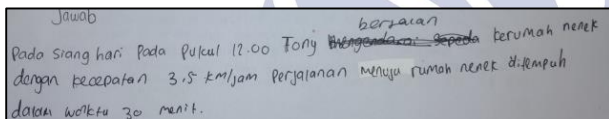 Jawab
berjalan
Pada siang hari Pada Pukul 12.00 Tony mengendarai sepeda kerumah nenek
dengan kecepatan 3.5 km/jam Perjalanan menuju rumah nenek ditempuh
dalam waktu 30 menit.